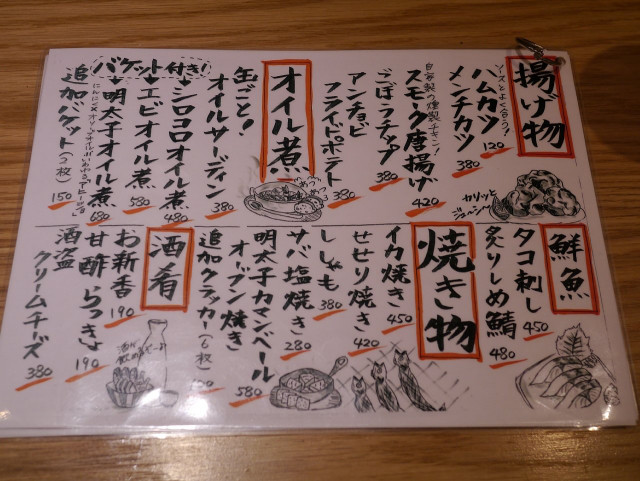 揚げ物
ソースとよく合う!
ハムカツ 120
メンチカツ 380
自家製の燻製チキン!
スモーク唐揚げ 420
ごぼうチップ 380
アンチョビ
フライドポテト 380
カリッと
ジューシー
オイル煮
缶ごと!
オイルサーディン 380
バゲット付き!
シロコロオイル煮 480
エビオイル煮 580
明太子オイル煮 680
追加バゲット(2枚) 150
あつ
あつ
鮮魚
タコ刺し 450
炙りしめ鯖 480
焼き物
イカ焼き 450
せせり焼き 420
ししゃも 380
サバ塩焼き 280
明太子カマンベール
オーブン焼き 580
追加クラッカー(6枚)
酒肴
お新香 190
甘酢らっきょ 190
酒盗
クリームチーズ 380